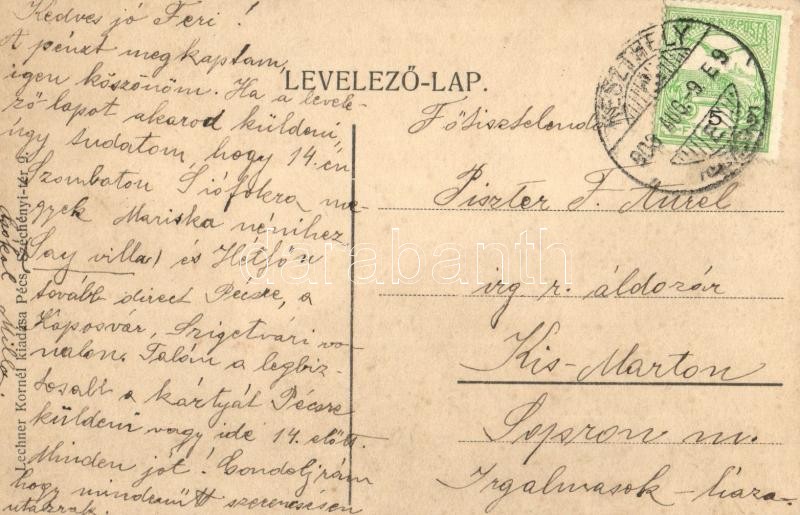 Kedves jó Feri!
A pénzt megkaptam,
igen köszönöm. Ha a levele-
ző-lapot akarod küldeni,
úgy tudatom, hogy 14.-én
Szombaton Siófokra me-
gyek Mariska nénihez
(Say villa) és Hétfőn
tovább direct Pécsre, a
Kaposvár, Szigetvári vo-
nalon. Talán a legbiz-
tosabb a kártyát Pécsre
küldeni vagy ide 14. előtt.
Minden jót! Gondolj rám
hogy mindenütt szerencsésen
utazzak.
Lechner Kornél kiadása Pécs, Széchényi-tér
LEVELEZŐ-LAP.
Főtisztelendő
Piszter F. Aurel
irg. r. áldozár
Kis-Marton
Sopron m.
Irgalmasok-háza
KESZTHELY
908 AUG. 9 E 9
KIR. POSTA
5
darabanth